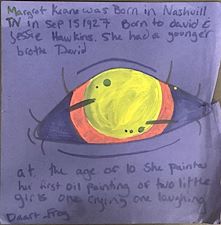 Margret Keane was Born in Nashvill
TN in Sep 15 1927 Born to David &
Jessie Hawkins. She had a younger
brothe David
at the age of 10 She painted
her first oil painting of two little
girls one crying one laughing
Daart-Frog